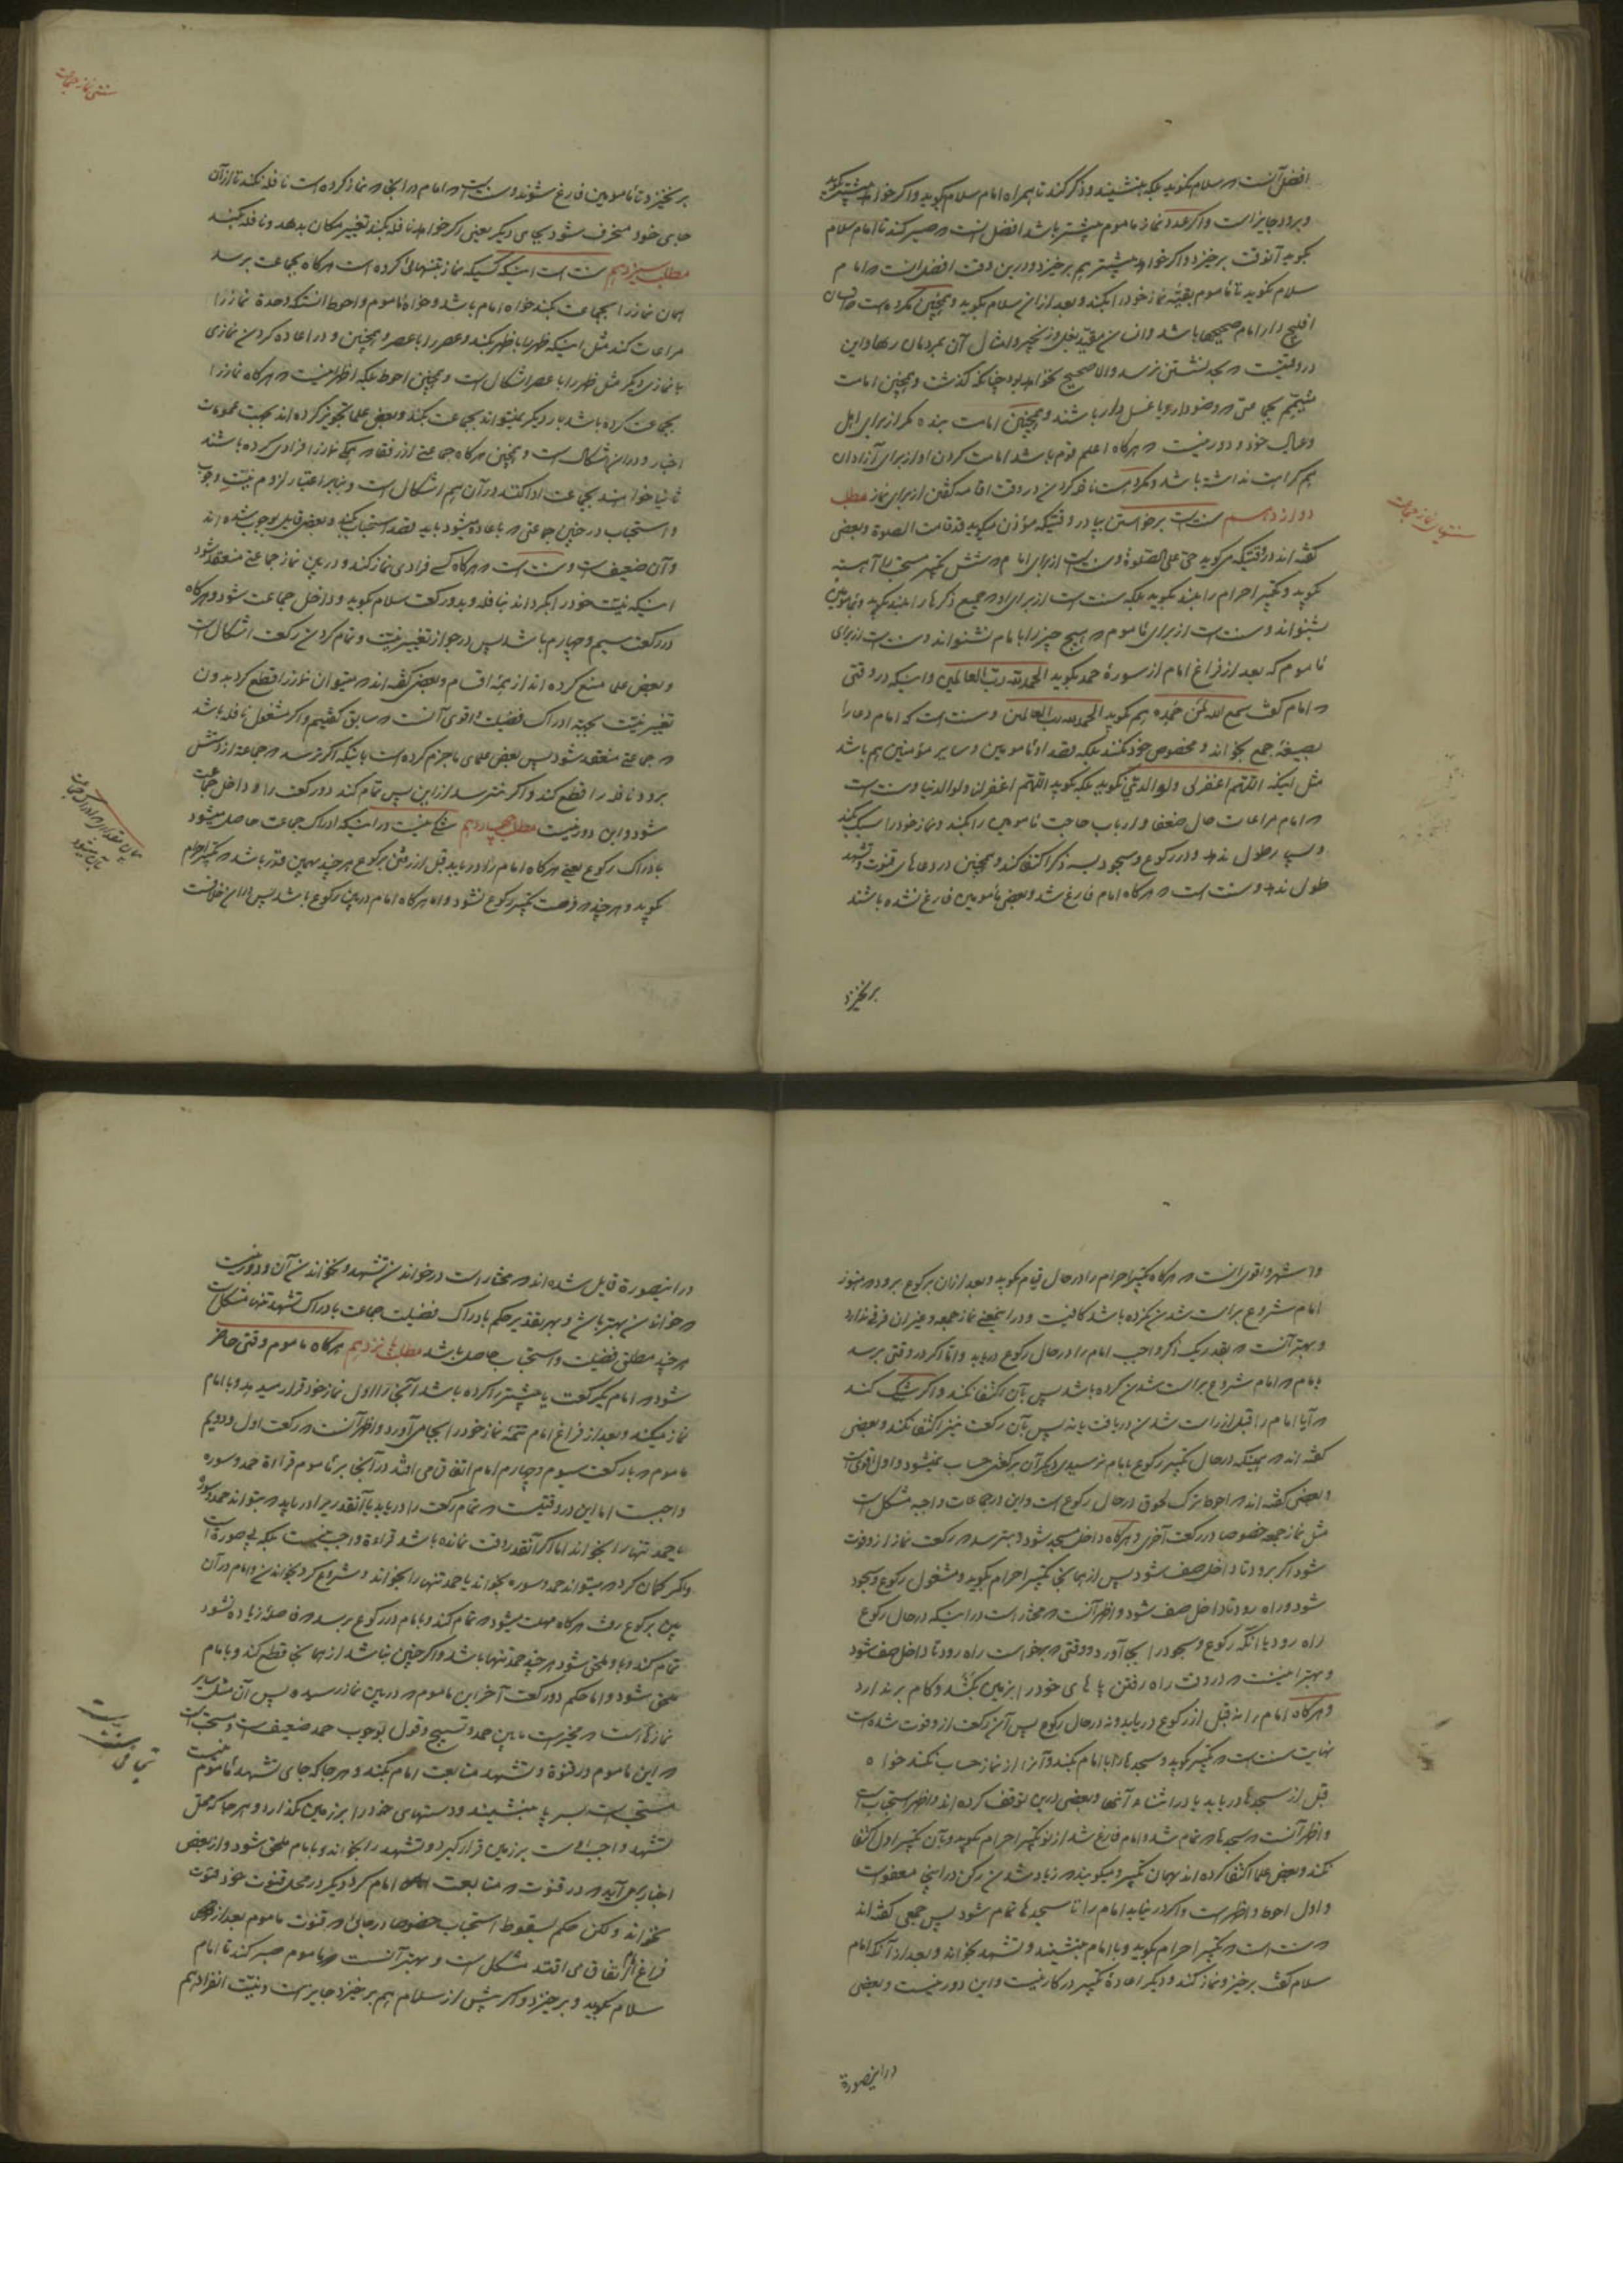 افضل آنست که سلام نگوید بلکه بنشیند و ذکر کند تا همراه امام سلام بگوید و اگر خواهد پیشتر بگوید
و برود جایز است و اگر عدد نماز ماموم پیشتر باشد افضل است که صبر کند تا امام سلام
بگوید آنوقت برخیزد و اگر خواهد پیشتر هم برخیزد و درین وقت افضل انست که امام
سلام نگوید تا ماموم بقیه نماز خود را بکند و بعد از آن سلام بگوید و همچنین مکروهست
امام صحیحها باشد و انسان مقید بغل و زنجیر و امثال آن بمردمان رها و این
در وقتیست که بحد نشستن نرسد و الا صحیح نخواهد بود چنانکه گذشت و همچنین امامت
متیمم بجماعتی که وضو دار و یا غسل دار باشند و همچنین امامت بنده مگر از برای اهل
و عیال خود و دور نیست که هرگاه اعلم قوم باشد امامت کردن او از برای آزادان
هم کراهت نداشته باشد و مکروهست نافله کردن در وقت اقامه گفتن از برای نماز مطلب
دوازدهم سنت است برخواستن بپا در وقتیکه مؤذن میگوید قدقامت الصلوة و بعضی
گفته اند در وقتیکه میگوید حی علی الصلوة و سنت است از برای امام که شش تکبیر مستحب را آهسته
بگوید و تکبیر احرام را بلند بگوید بلکه سنت است از برای او که جمیع ذکرها را بلند بگوید و بمامومین
بشنواند و سنت است از برای ماموم که هیچ چیز را بامام نشنواند و سنت است از برای
ماموم که بعد از فراغ امام از سورهٔ حمد بگوید الحمد لله رب العالمین و اینکه در وقتی
که امام گفت سمع الله لمن حمده هم بگوید الحمد لله رب العالمین و سنت است که امام دعا را
بصیغهٔ جمع بخواند و مخصوص خود نکند بلکه بقصد او مامومین و سایر مؤمنین هم باشد
مثل اینکه اللهم اغفر لی ولوالدی نگوید بلکه بگوید اللهم اغفر لنا ولوالدینا و سنت است
که امام مراعات حال ضعفا و ارباب حاجت مامومین را بکند و نماز خود را سبک بکند
و بسیار طول ندهد و در رکوع و سجود بسه ذکر اکتفا کند و همچنین در دعاهای قنوت و تشهد
طول ندهد و سنت است که هرگاه امام فارغ شد و بعضی مأمومین فارغ نشده باشند
برنخیزد
سنتهای نماز جماعت
سنتی نماز جماعت
برنخیزد تا مامومین فارغ شوند و سنت است که امام در آنجا که نماز کرده است نافله نکند تا از آن
جای خود منحرف شود بجای دیگر یعنی اگر خواهد نافله بکند تغییر مکان بدهد و نافله بکند
مطلب سیزدهم سنت است اینکه کسیکه نماز بتنهائی کرده است هرگاه بجماعت برسد
همان نماز را بجماعت بکند خواه امام باشد و خواه ماموم و احوط آنستکه وحدة نماز را
مراعات کند مثل اینکه ظهر را با ظهر بکند و عصر را با عصر و همچنین و در اعاده کردن نمازی
با نمازی دیگر مثل ظهر را با عصر اشکال است و همچنین احوط بلکه اظهر نیست که هرگاه نماز را
بجماعت کرده باشد بار دیگر نمیتواند بجماعت بکند و بعض علما تجویز کرده اند بجهت عمومات
اخبار و در این اشکال است و همچنین هرگاه جماعتی از رفقا که همگی نماز را فرادی کرده باشند
ثانیا خواهند بجماعت ادا کنند در آن هم اشکال است و بنابر اعتبار لزوم نیت وجوب
و استحباب در چنین جماعتی که باعاده میشود باید بقصد استحباب بکند و بعض قایل بوجوب شده اند
و آن ضعیف است و سنت است که هرگاه کسی فرادی نماز کند و در بین نماز جماعتی منعقد شود
اینکه نیت خود را بگرداند بنافله و بدو رکعت سلام بگوید و داخل جماعت شود و هرگاه
در رکعت سیم و چهارم باشد پس در جواز تغییر نیت و تمام کردن رکعت اشکال است
و بعض علما منع کرده اند از همهٔ اقسام و بعضی گفته اند که میتوان نماز را قطع کرد بدون
تغییر نیت بجهة ادراک فضیلت و اقوی آنست که سابق گفتیم و اگر مشغول نافله باشد
که جماعتی منعقد شود پس بعض علمای ما جزم کرده است باینکه اگر ترسد که جماعة از دستش
برود نافله را قطع کند و اگر نترسد از این پس تمام کند دو رکعت را و داخل جماعت
شود و این دور نیست مطلب چهاردهم شکی نیست در اینکه ادراک جماعت حاصل میشود
بادراک رکوع یعنی هرگاه امام را دریابد قبل از رفتن برکوع هر چند بهمین قدر باشد که تکبیر احرام
بگوید و هر چند که فرصت تکبیر رکوع نشود و اما هرگاه امام در بین رکوع باشد پس در این خلافست
بیان مقداری که ادراک جماعت
بآن میشود
و اشهر و اقوی انست که هرگاه تکبیر احرام را در حال قیام بگوید و بعد از آن برکوع برود که هنوز
امام شروع براست شدن نکرده باشد کافیست و در اینمعنی نماز جمعه و غیر آن فرقی ندارد
و بهتر آنست که بقدر یک ذکر واجب امام را در حال رکوع دریابد و اما اگر در وقتی برسد
بامام که امام شروع براست شدن کرده باشد پس بآن اکتفا نکند و اگر شک کند
که آیا امام را قبل از راست شدن دریافت یا نه پس بآن رکعت نیز اکتفا نکند و بعضی
گفته اند که همینکه در حال تکبیر رکوع بامام نرسید دیگر آن برکعتی حساب نمیشود و اول اقوی است
و بعضی گفته اند که احوط ترک لحوق در حال رکوع است و این در جماعات واجبه مشکل است
مثل نماز جمعه خصوصا در رکعت آخری و هرگاه داخل مسجد شود و بترسد که رکعت نماز از او فوت
شود اگر برود تا داخل صف شود پس از همانجا تکبیر احرام بگوید و مشغول رکوع و سجود
شود و راه رود تا داخل صف شود و اظهر آنست که مختار است در اینکه در حال رکوع
راه رود یا آنکه رکوع و سجود را بجا آورد و وقتی که برخواست راه رود تا داخل صف شود
و بهتر اینست که در وقت راه رفتن پاهای خود را بزمین بکشد و گام برندارد
و هرگاه امام را نه قبل از رکوع دریابد و نه در حال رکوع پس آن رکعت از او فوت شده است
نهایت سنت است که تکبیر بگوید و سجدها را با امام بکند و آنرا از نماز حساب نکند خواه
قبل از سجدها دریابد یا در اثناء آنها و بعضی درین توقف کرده اند و اظهر استحباب است
و اظهر آنست که سجدها که تمام شد و امام فارغ شد از نو تکبیر احرام بگوید و بآن تکبیر اول اکتفا
نکند و بعض علما اکتفا کرده اند بهمان تکبیر و میگویند که زیاد شدن رکن در اینجا معفوست
و اول احوط و اظهر است و اگر درنیابد امام را تا سجدها تمام شود پس جمعی گفته اند
که سنت است که تکبیر احرام بگوید و با امام بنشیند و تشهد بخواند و بعد از آنکه امام
سلام گفت برخیزد و نماز کند و دیگر اعادهٔ تکبیر در کار نیست و این دور نیست و بعضی
در اینصورة
در اینصورة قایل شده اند که مختار است در خواندن تشهد و نخواندن آن و دور نیست
که خواندن بهتر باشد و بهر تقدیر حکم بادراک فضیلت جماعت بادراک تشهد تنها مشکل است
هر چند مطلق فضیلت و استحباب حاصل باشد مطلب پانزدهم هرگاه ماموم وقتی حاضر
شود که امام یکرکعت یا پیشتر را کرده باشد آنجا را اول نماز خود قرار میدهد و با امام
نماز میکند و بعد از فراغ امام تتمهٔ نماز خود را بجا می آورد و اظهر آنست که رکعت اول و دویم
ماموم که با رکعت سیوم و چهارم امام اتفاق می افتد در آنجا بر ماموم قراءة حمد و سوره
واجبست اما این در وقتیست که تمام رکعت را دریابد یا آنقدر را دریابد که بتواند حمد و سوره
یا حمد تنها را بخواند اما اگر آنقدر وقت نمانده باشد قراءة واجب نیست
و اگر گمان کرد که میتواند حمد و سوره بخواند یا حمد تنها را بخواند و شروع کرد بخواندن و امام در آن
بین برکوع رفت هرگاه مهلت میشود که تمام کند و بامام در رکوع برسد که فاصله زیاده نشود
تمام کند و باو ملحق شود هر چند حمد تنها باشد و اگر چنین نباشد از همانجا قطع کند و بامام
ملحق شود و اما حکم دو رکعت آخر این ماموم که در بین نماز رسیده پس آن مثل سایر
نمازهاست که مخیر است مابین حمد و تسبیح و قول بوجوب حمد ضعیف است و مستحب است
که این ماموم در قنوة و تشهد متابعت امام بکند و هر جا که جای تشهد ماموم نیست
مستحب است بسر پا بنشیند و دستهای خود را بر زمین بگذارد و هر جا که محل
تشهد واجب اوست بر زمین قرار گیرد و تشهد را بخواند و بامام ملحق شود و از بعض
اخبار بر می آید که در قنوت که متابعت امام کرد دیگر در محل قنوت خود قنوت
نخواند و لکن حکم بسقوط استحباب خصوصا در جائی که قنوت ماموم بعد از
فراغ امام اتفاق می افتد مشکل است و بهتر آنست که ماموم صبر کند تا امام
سلام بگوید و برخیزد و اگر پیش از سلام هم برخیزد جایز است و نیت انفراد هم